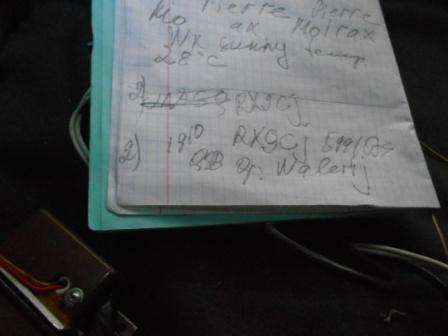 Mo Pierre Pierre
ak Moirax
WX sunny temp
28°C
2) RX9CJ
2) 19¹⁰ RX9CJ 599/599
QSB Op. Walerij